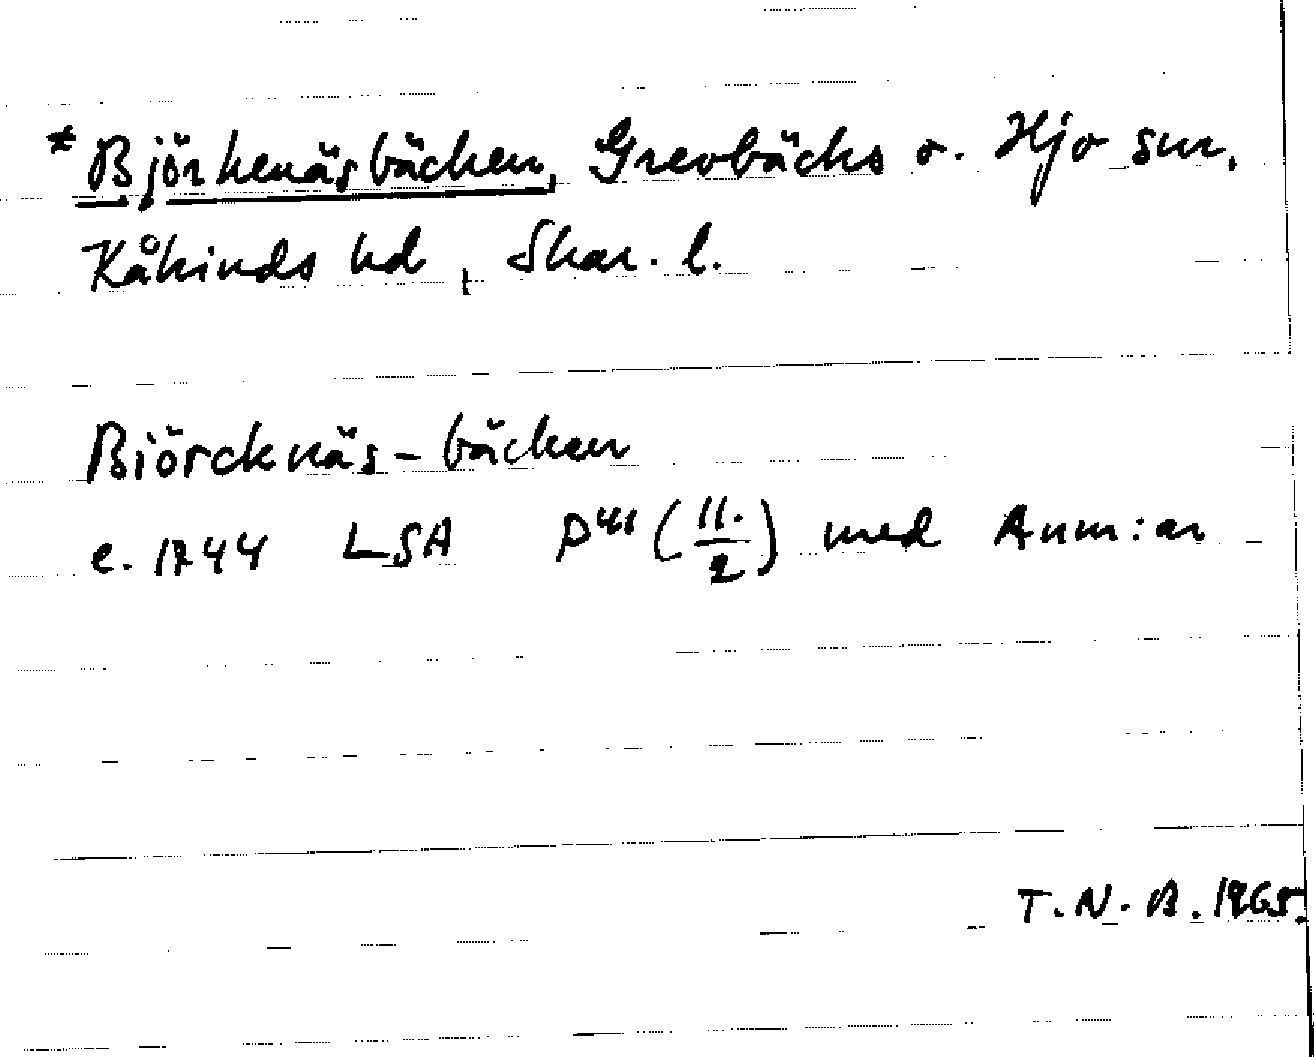 * Björkenäsbäcken, Grevbäcks o. Hjo snr,
Kåkinds hd, Skar. l.
Biörcknäs-bäcken
c. 1744 LSA P41 (11./2) med Anm:ar
T.N.B. 1965.